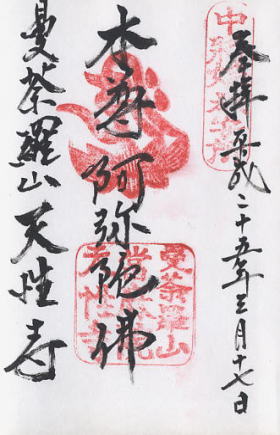 奉拝 平成二十五年三月十七日
本尊 阿弥陀佛
曼荼羅山 天性寺
曼荼羅山
天性寺